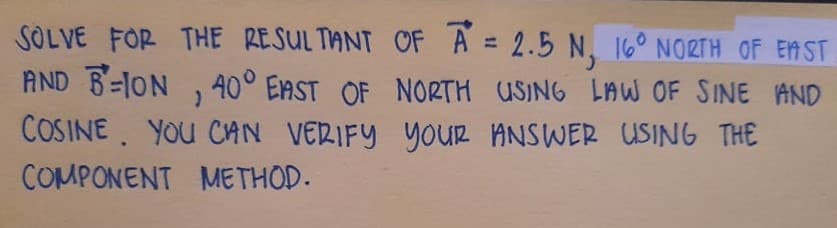 SOLVE FOR THE RESULTANT OF A⃗ = 2.5 N, 16° NORTH OF EAST
AND B⃗=10N , 40° EAST OF NORTH USING LAW OF SINE AND
COSINE. YOU CAN VERIFY YOUR ANSWER USING THE
COMPONENT METHOD.